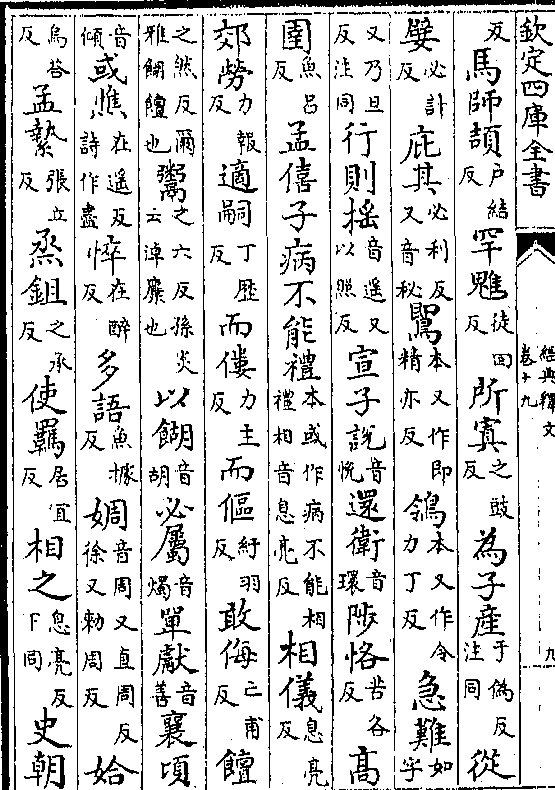 欽定四庫全書 經典釋文 卷十九 九
反馬師頡戶結反罕魋徒回反所寘之豉反為子産于偽反注同從
嬖必計反庇其必利反又音秘鶺本又作即精亦反鴒本又作令力丁反急難如字
又乃旦反注同行則揺音遥又以照反宣子說音悦還衛音環陟恪苦各反高
圉魚吕反孟僖子病不能禮本或作病不能相禮相音息亮反相儀息亮反
郊勞力報反適嗣丁歴反而僂力主反而傴紆羽反敢侮亡甫反饘
之然反爾雅餬饘也鬻之六反孫炎云淖糜也以餬音胡必屬音燭單獻音善襄頃
音傾或憔在遥反詩作盡悴在醉反多語魚據反婤音周又直周反徐又勑周反姶
烏荅反孟縶張立反烝鉏之承反使羈居宜反相之息亮反下同史朝